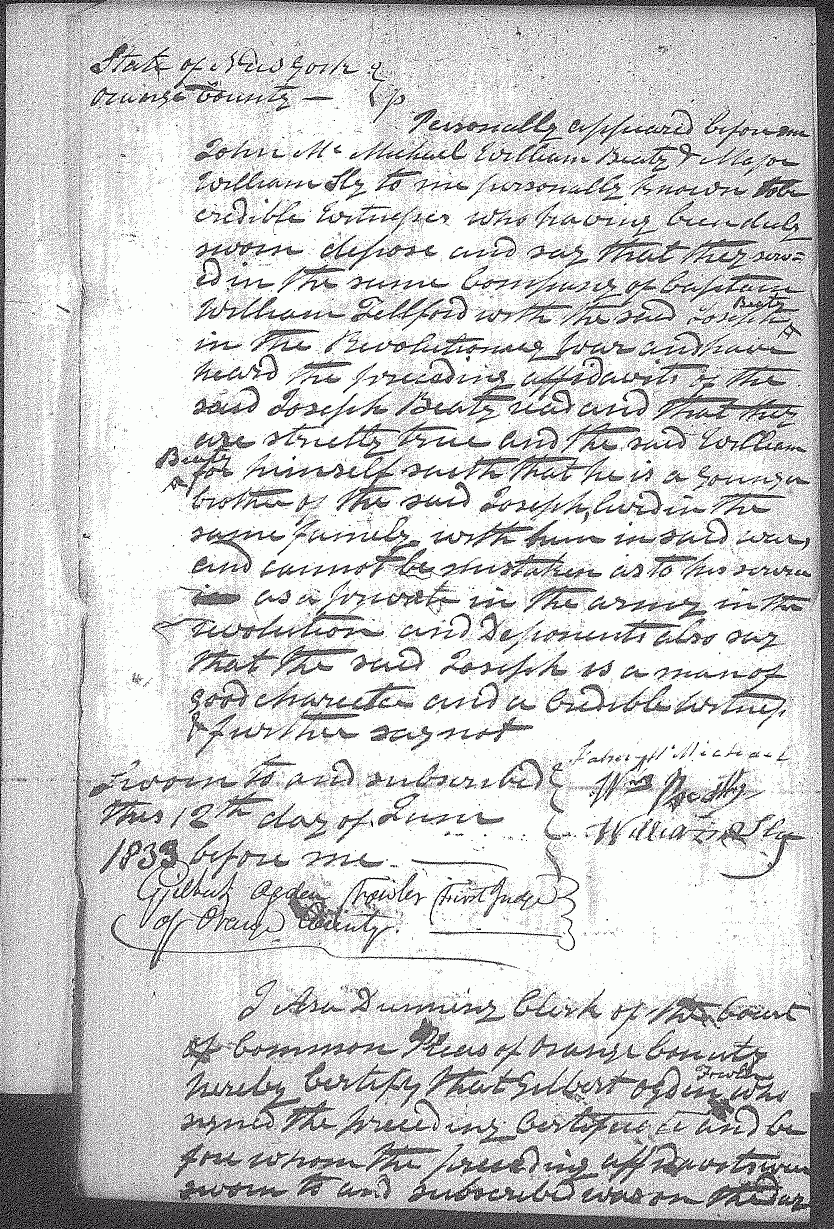 State of New York }
Orange County — } ss
Personally appeared before me
John Mc Michael William Beaty & Major
William Sly to me personally known to be
credible Witnesses who having been duly
sworn depose and say that they serv=
ed in the same Company of Captain
William Tellford with the said Joseph Beaty
in the Revolutionary War and have
heard the preceding affidavits of the
said Joseph Beaty read and that they
are strictly true and the said William
Beaty for himself saith that he is a younger
brother of the said Joseph, lived in the
same family with him in said war,
and cannot be mistaken as to his service
as a private in the army in the
revolution and Deponents also say
that the said Joseph is a man of
good character and a Credible Witness
& further say not
Sworn to and subscribed
this 12th day of June
1833 before me
John Mc Michael
Wm Beatty
William Sly
Gilbert Ogden Fowler First Judge
of Orange County.
I Asa Dunning Clerk of the Court
of Common Pleas of Orange County
hereby Certify that Gilbert Ogden Fowler who
signed the preceding Certificate and be
fore whom the preceding affidavits were
sworn to and subscribed was on the day